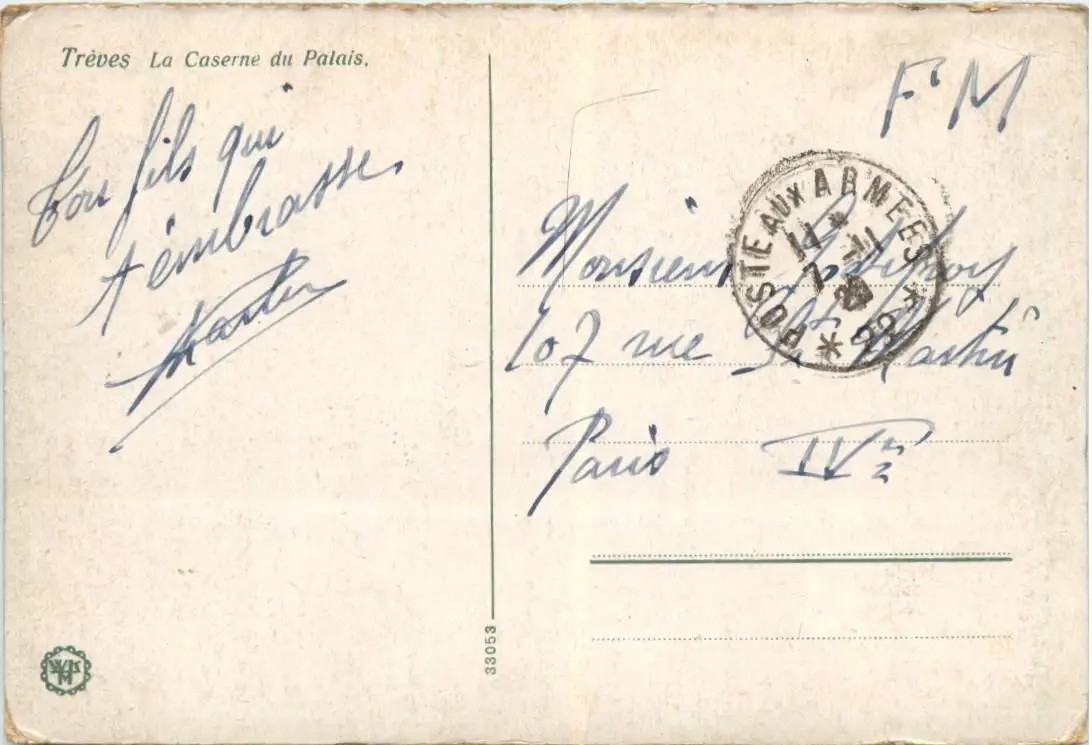 Trèves La Caserne du Palais.
Ton fils qui
t'embrasse
F M
POSTE AUX ARMEES * 22 *
11 *
7 -11
Monsieur
107 rue St Martin
Paris IVe
33053